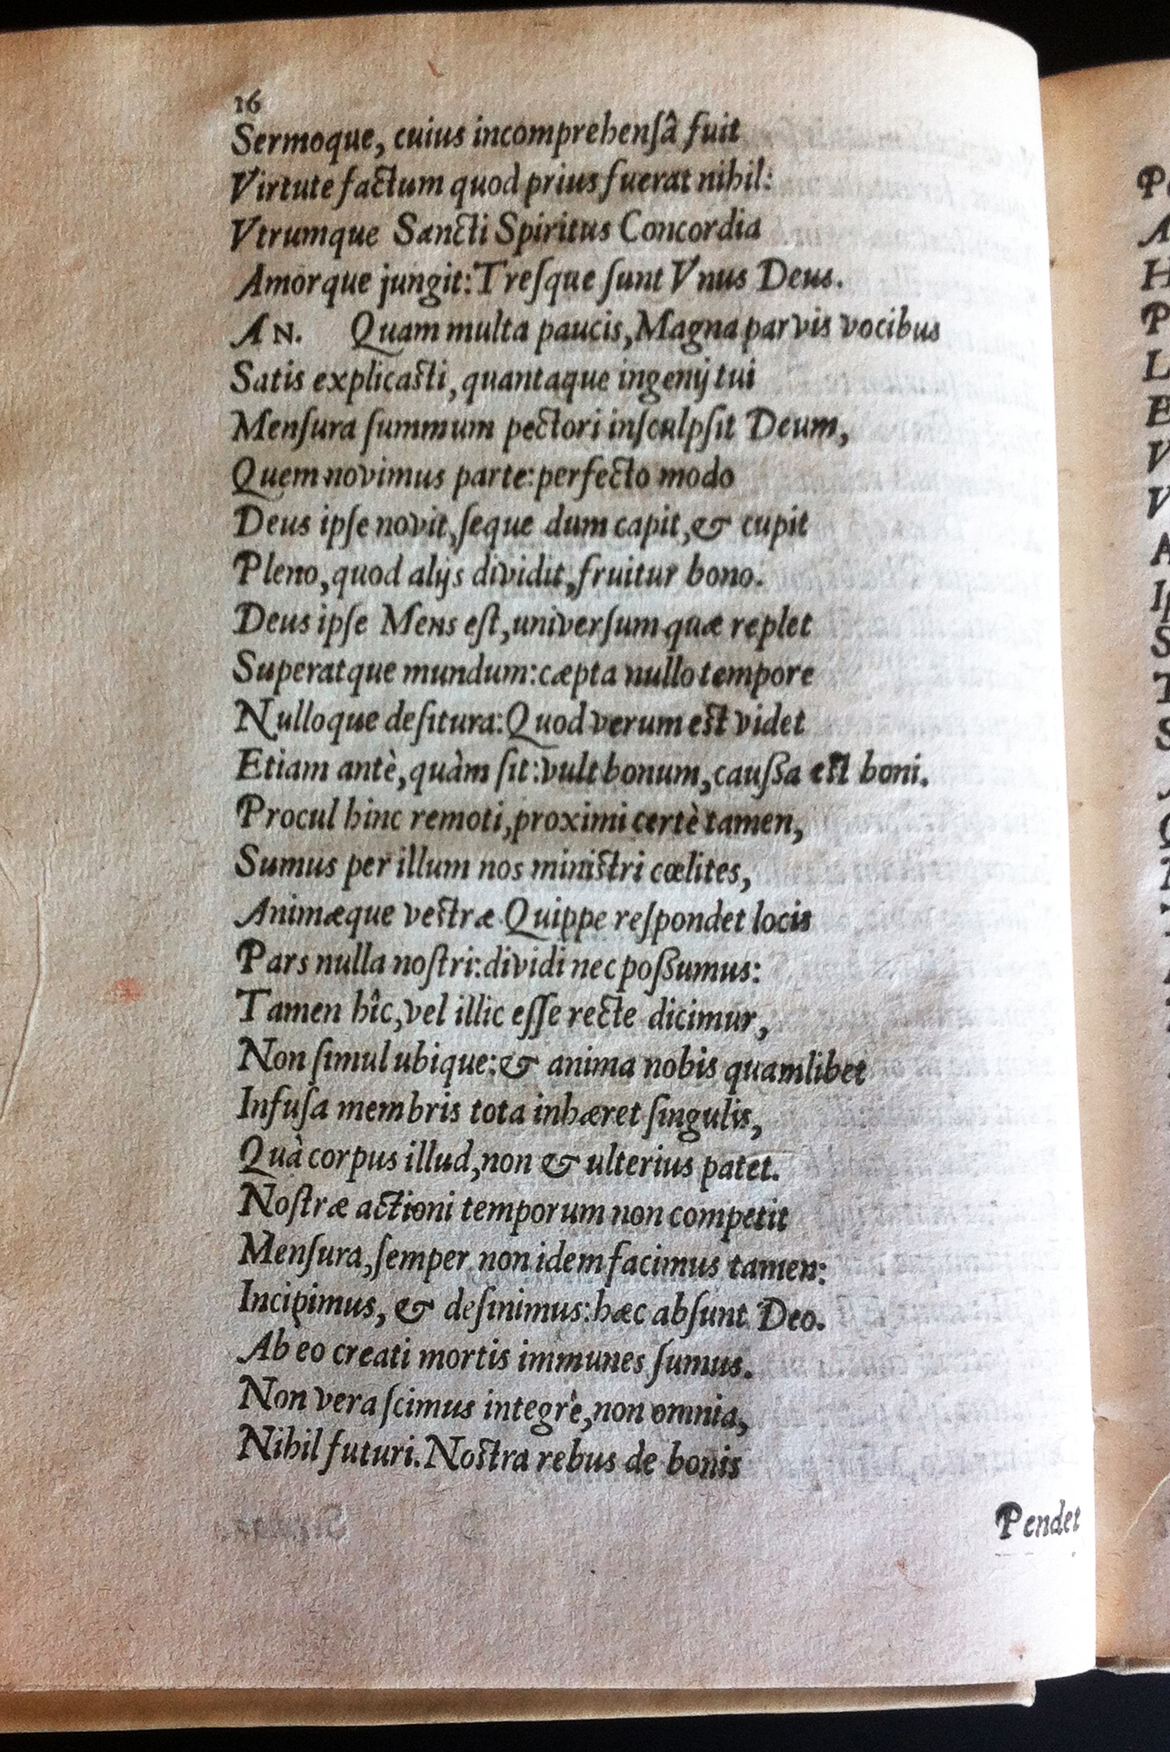 16
Sermoque, cuius incomprehensâ fuit
Virtute factum quod prius fuerat nihil:
Vtrumque Sancti Spiritus Concordia
Amorque jungit: Tresque sunt Vnus Deus.
AN. Quam multa paucis, Magna parvis vocibus
Satis explicasti, quantaque ingenij tui
Mensura summum pectori insculpsit Deum,
Quem novimus parte: perfecto modo
Deus ipse novit, seque dum capit, & cupit
Pleno, quod alijs dividit, fruitur bono.
Deus ipse Mens est, universum quæ replet
Superatque mundum: cæpta nullo tempore
Nulloque desitura: Quod verum est videt
Etiam antè, quàm sit: vult bonum, caussa est boni.
Procul hinc remoti, proximi certè tamen,
Sumus per illum nos ministri cœlites,
Animæque vestræ Quippe respondet locis
Pars nulla nostri: dividi nec possumus:
Tamen hîc, vel illic esse recte dicimur,
Non simul ubique: & anima nobis quamlibet
Infusa membris tota inhæret singulis,
Quà corpus illud, non & ulterius patet.
Nostræ actioni temporum non competit
Mensura, semper non idem facimus tamen:
Incipimus, & desinimus: hæc absunt Deo.
Ab eo creati mortis immunes sumus.
Non vera scimus integrè, non omnia,
Nihil futuri. Nostra rebus de bonis
Pendet